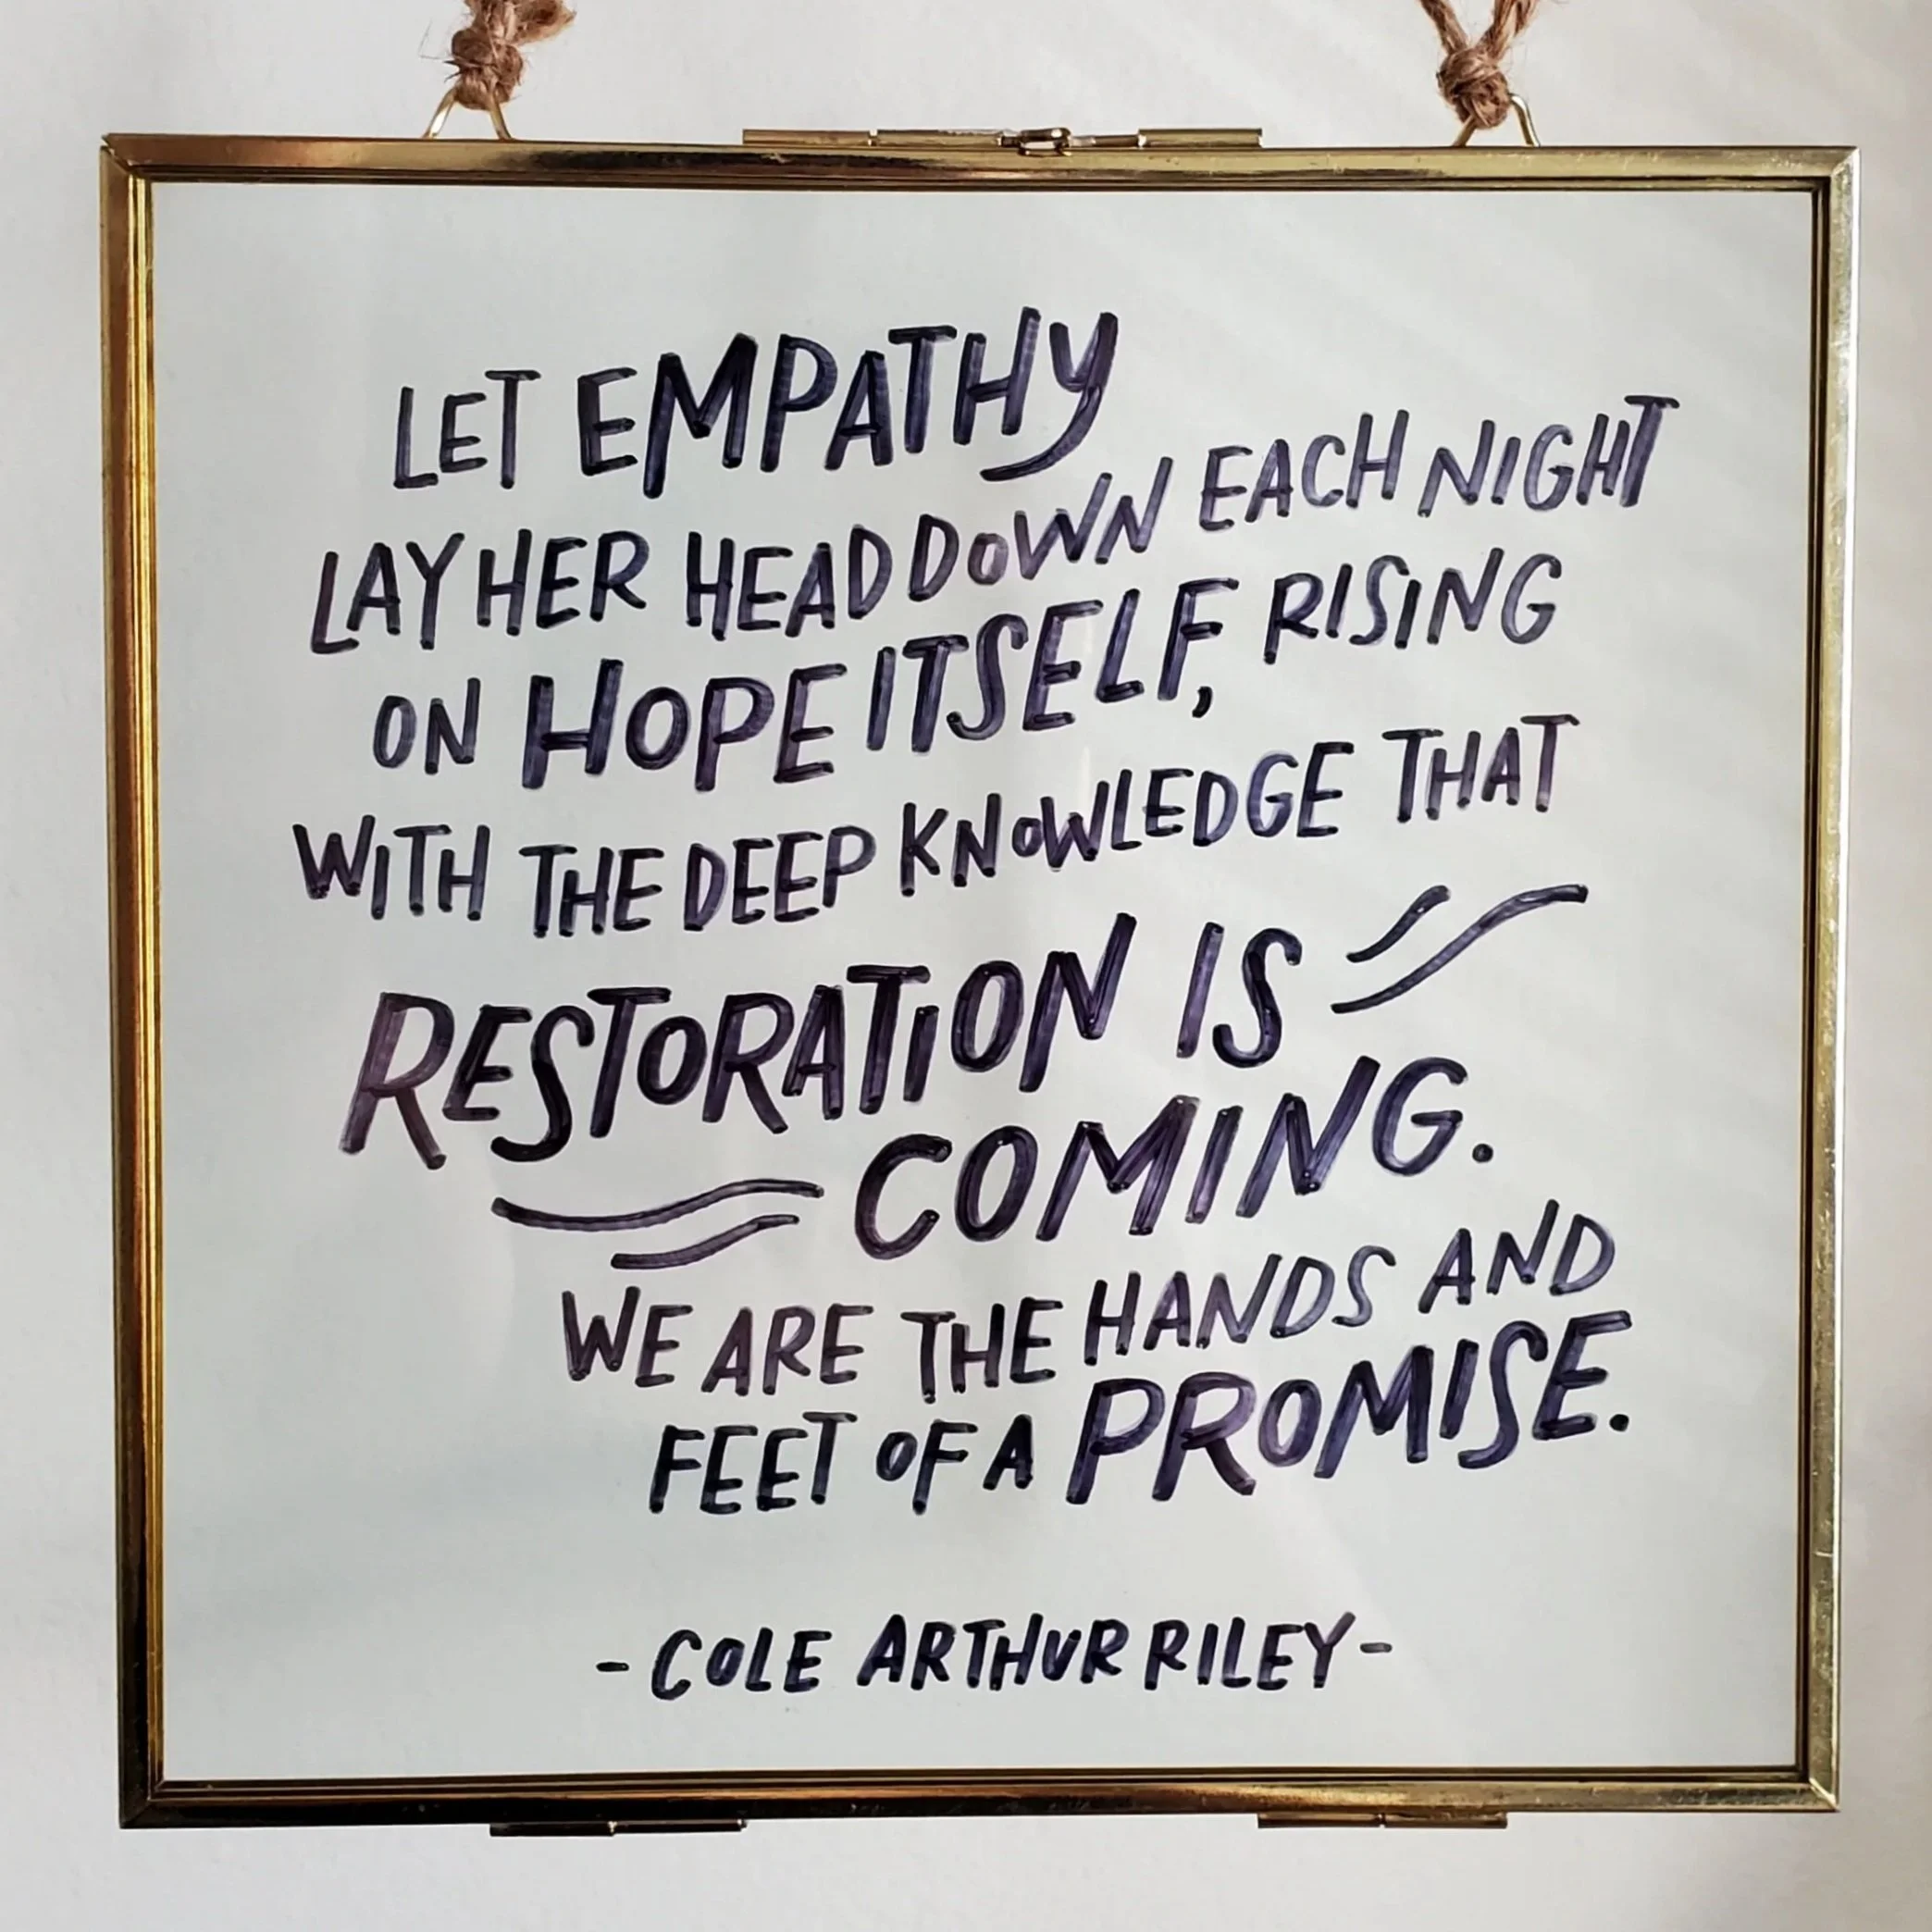 LET EMPATHY
LAY HER HEAD DOWN EACH NIGHT
ON HOPE ITSELF, RISING
WITH THE DEEP KNOWLEDGE THAT
RESTORATION IS
COMING.
WE ARE THE HANDS AND
FEET OF A PROMISE.
- COLE ARTHUR RILEY -